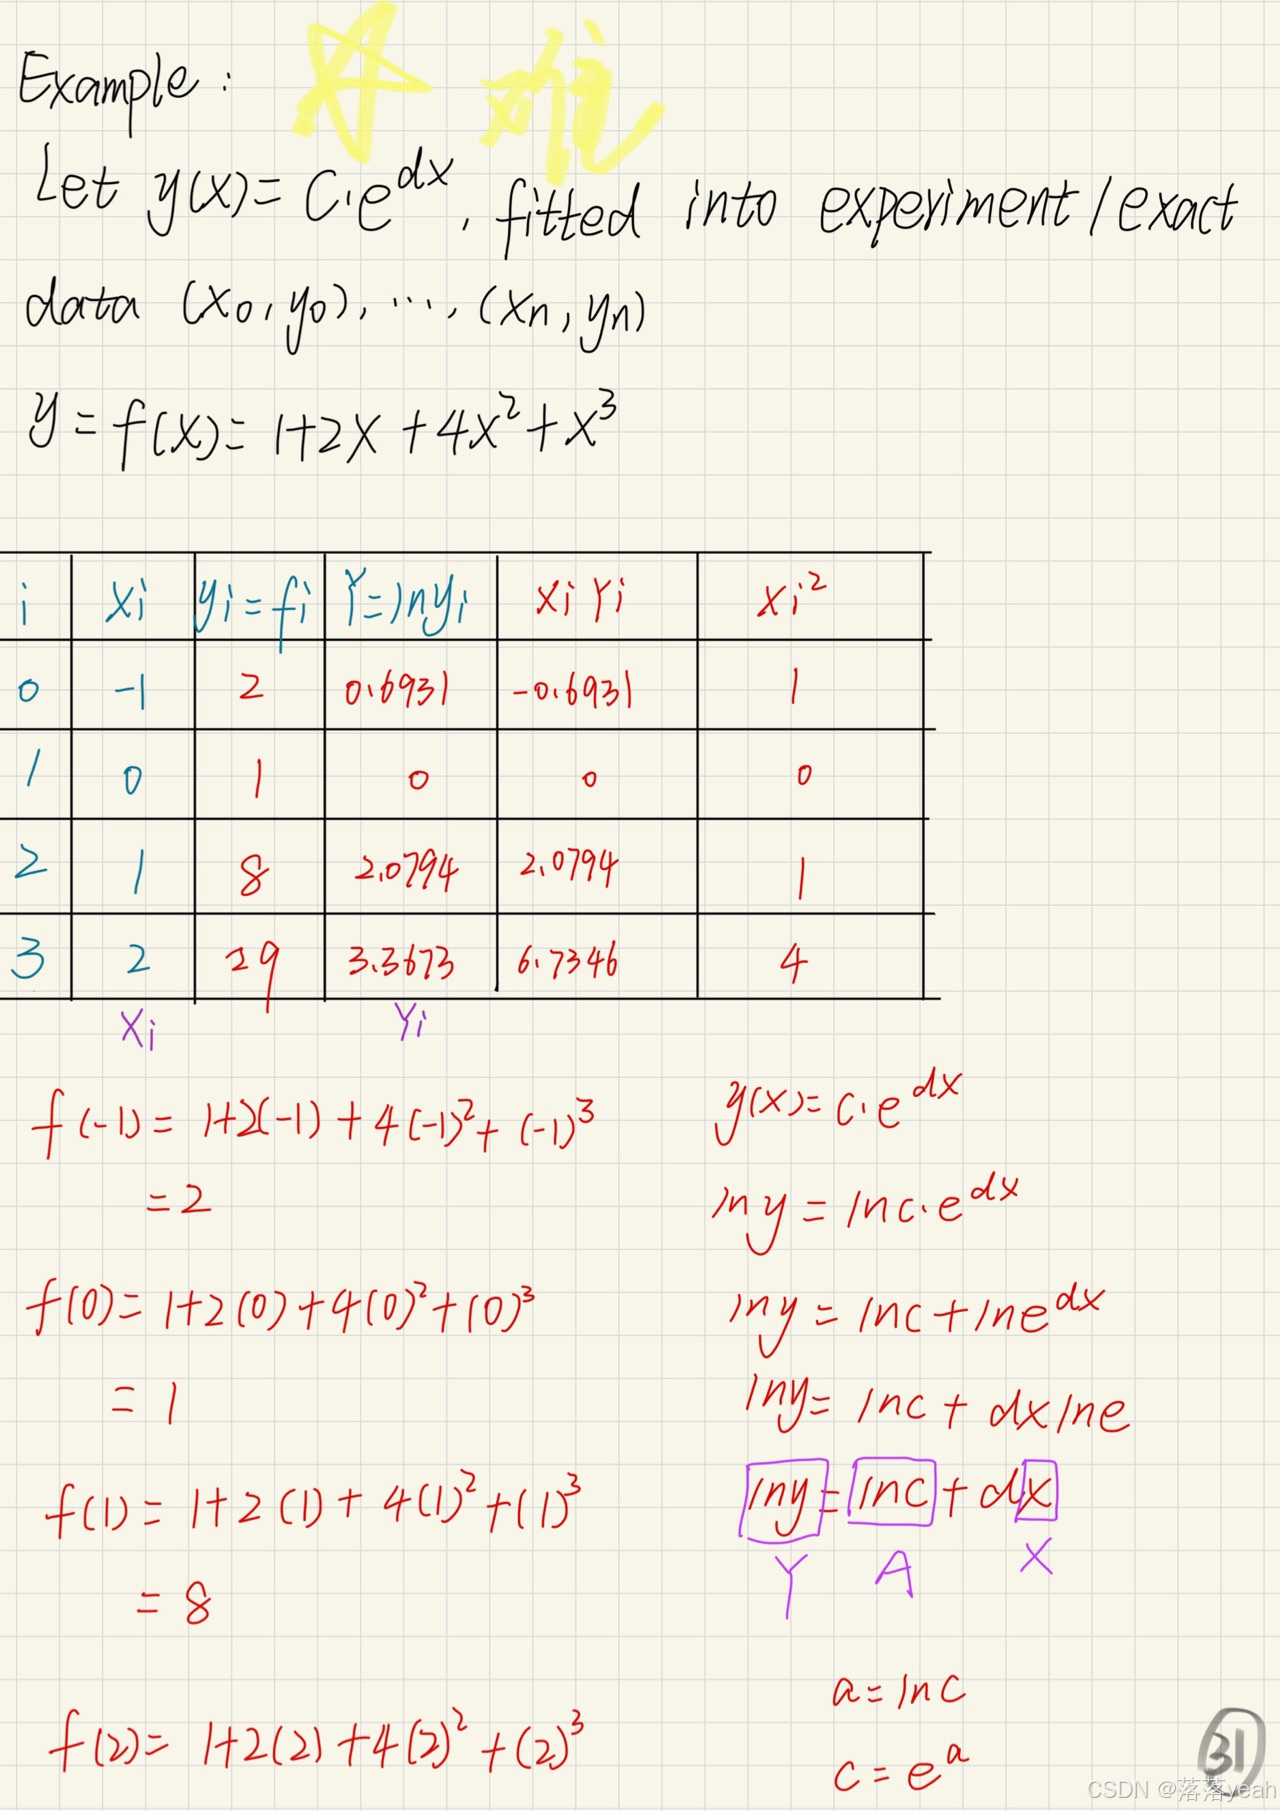 Example:
☆ 难
Let y(x) = C·e^{dx}, fitted into experiment/exact
data (x₀, y₀), ⋯, (xn, yn)
y = f(x) = 1+2x+4x²+x³
i xi yi=fi Y=lnyi xiYi xi²
0 -1 2 0.6931 -0.6931 1
1 0 1 0 0 0
2 1 8 2.0794 2.0794 1
3 2 29 3.3673 6.7346 4
Xi Yi
f(-1) = 1+2(-1)+4(-1)²+(-1)³
=2
f(0) = 1+2(0)+4(0)²+(0)³
= 1
f(1) = 1+2(1)+4(1)²+(1)³
= 8
f(2) = 1+2(2)+4(2)²+(2)³
y(x) = c·e^{dx}
lny = lnc·e^{dx}
lny = lnc+lne^{dx}
lny = lnc+dxlne
lny = lnc+dx
Y A X
a=lnc
c=e^a
31
CSDN @落落yeah